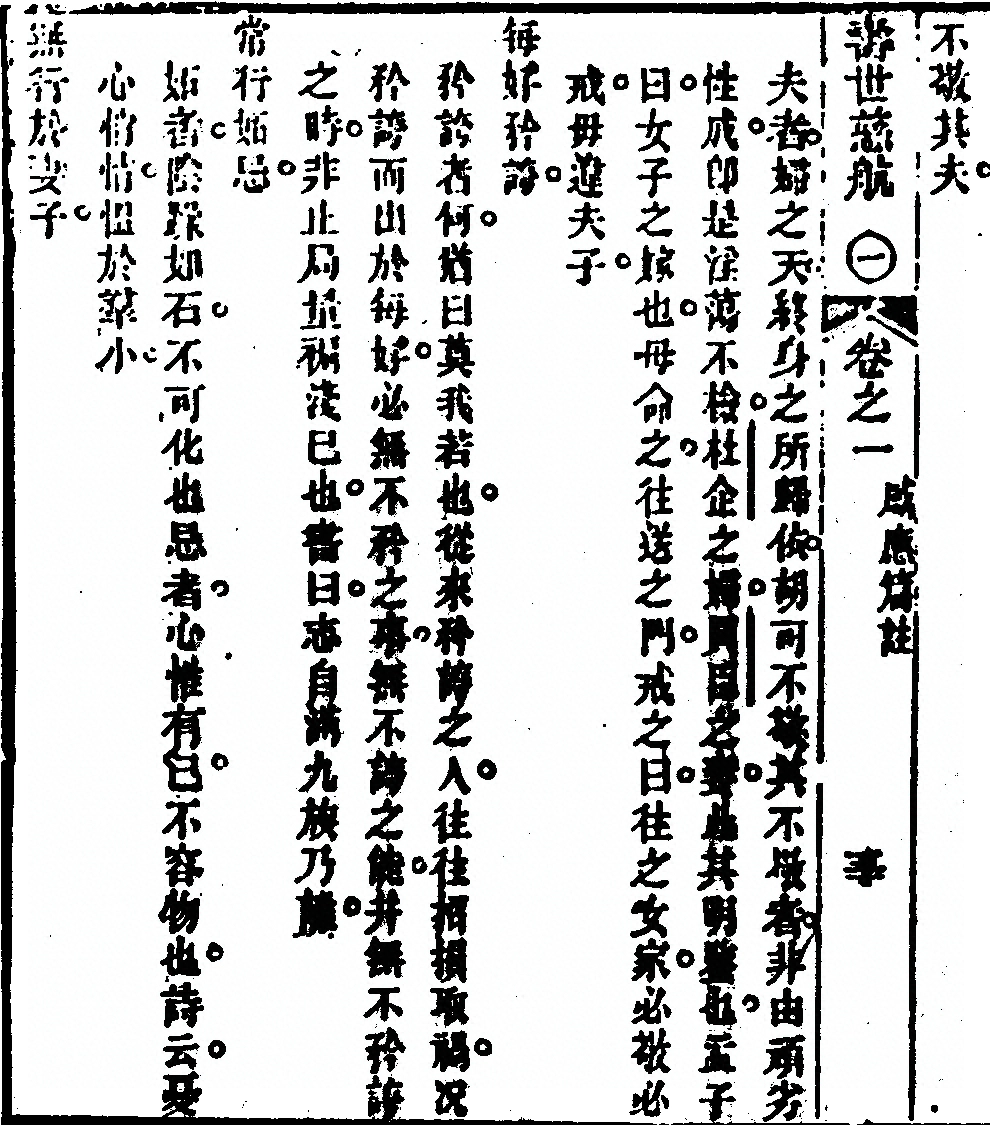 不敬其夫
壽世慈航 一 卷之一 感應篇註 事
夫者婦之天終身之所歸依胡可不敬其不敬者非由頑劣
性成即是淫蕩不檢杜企之婦周臣之妻此其明鑒也孟子
曰女子之嫁也母命之往送之門戒之曰往之女家必敬必
戒毋違夫子
每好矜誇
矜誇者何猶曰莫我若也從來矜誇之人往往招損取禍况
矜誇而出於每好必無不矜之事無不誇之能并無不矜誇
之時非止局量褊淺已也書曰志自滿九族乃離
常行妬忌
妬者陰躁如石不可化也忌者心惟有已不容物也詩云憂
心悄悄慍於羣小
無行於妻子